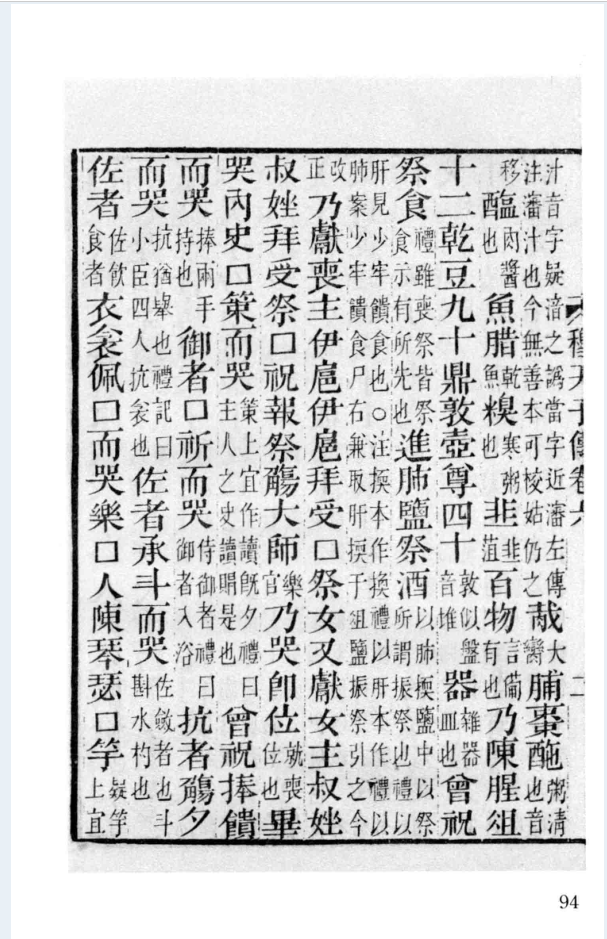 穆天子傳卷六 二
汁音字疑湆之譌當字近瀋左傳注瀋汁也今無善本可校姑仍之哉大臠脯棗䤈粥淸也音
移醢肉醬也魚腊乾魚糗寒粥也韭韭菹百物言備有也乃陳腥俎
十二乾豆九十鼎敦壺尊四十敦似盤音堆器雜器皿也曾祝
祭食禮雖喪祭皆祭食示有所先也進肺鹽祭酒以肺揳鹽中以祭所謂振祭也禮以
肝見少牢饋食也○注揳本作換禮以肝本作禮以肺案少牢饋食尸右兼取肝揳于俎鹽振祭引之今
改正乃獻喪主伊扈伊扈拜受□祭女又獻女主叔㛗
叔㛗拜受祭□祝報祭觴大師樂官乃哭卽位就喪位也畢
哭內史□策而哭策上宜作讀旣夕禮曰主人之史讀賵是也曾祝捧饋
而哭捧兩手持也御者□祈而哭侍御者禮曰御者入浴抗者觴夕
而哭抗猶舉也禮記曰小臣四人抗衾也佐者承斗而哭佐斂者也斗斟水杓也
佐者佐飮食者衣衾佩□而哭樂□人陳琴瑟□竽疑竽上宜
94